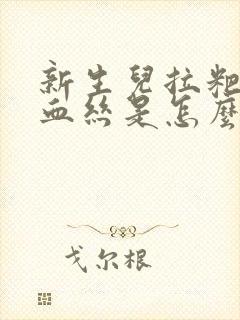 新生兒拉粑
血絲是怎麼
戈尔根